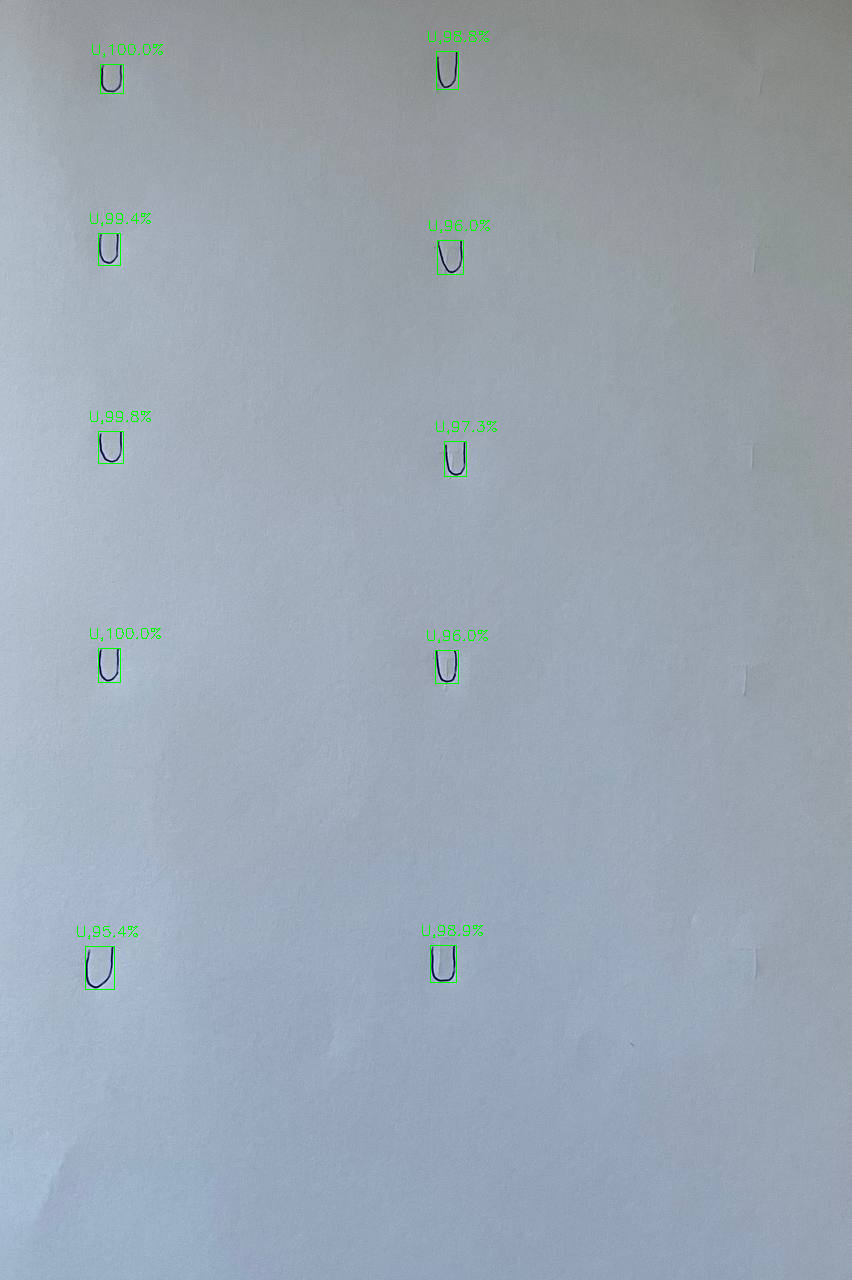 U,100.0%
U
U
U,99.4%
U
U
U,99.8%
U
U,97.3%
U
U,100.0%
U
U,96.0%
U
U,95.4%
U
U,98.9%
U